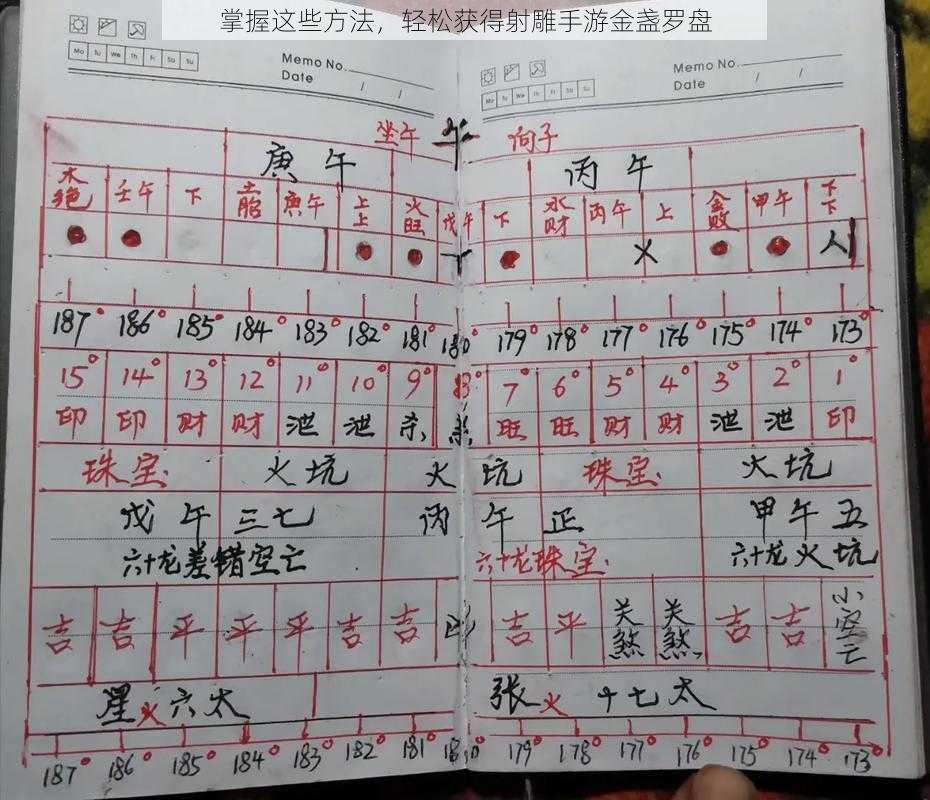 掌握这些方法，轻松获得射雕手游金盏罗盘
Memo No.
Date / /
Mo Tu We Th Fr Sa Su
Memo No.
Date / /
Mo Tu We Th Fr Sa Su
坐午 午 向子
庚午 丙午
木绝 壬午 下 土胎 庚午 上上 火旺 戊午 下 水财 丙午 上 金败 甲午 下下
187° 186° 185° 184° 183° 182° 181° 180° 179° 178° 177° 176° 175° 174° 173°
15° 14° 13° 12° 11° 10° 9° 8° 7° 6° 5° 4° 3° 2° 1°
印 印 财 财 泄 泄 杀 杀 旺 旺 财 财 泄 泄 印
珠宝 火坑 火坑 珠宝 火坑
戊午三七 丙午正 甲午五
六十龙差错空亡 六十龙珠宝 六十龙火坑
吉 吉 平 平 平 吉 吉 吉 平 关煞 关煞 吉 吉 小空亡
星火六太 张火十七太
187° 186° 185° 184° 183° 182° 181° 180° 179° 178° 177° 176° 175° 174° 173°